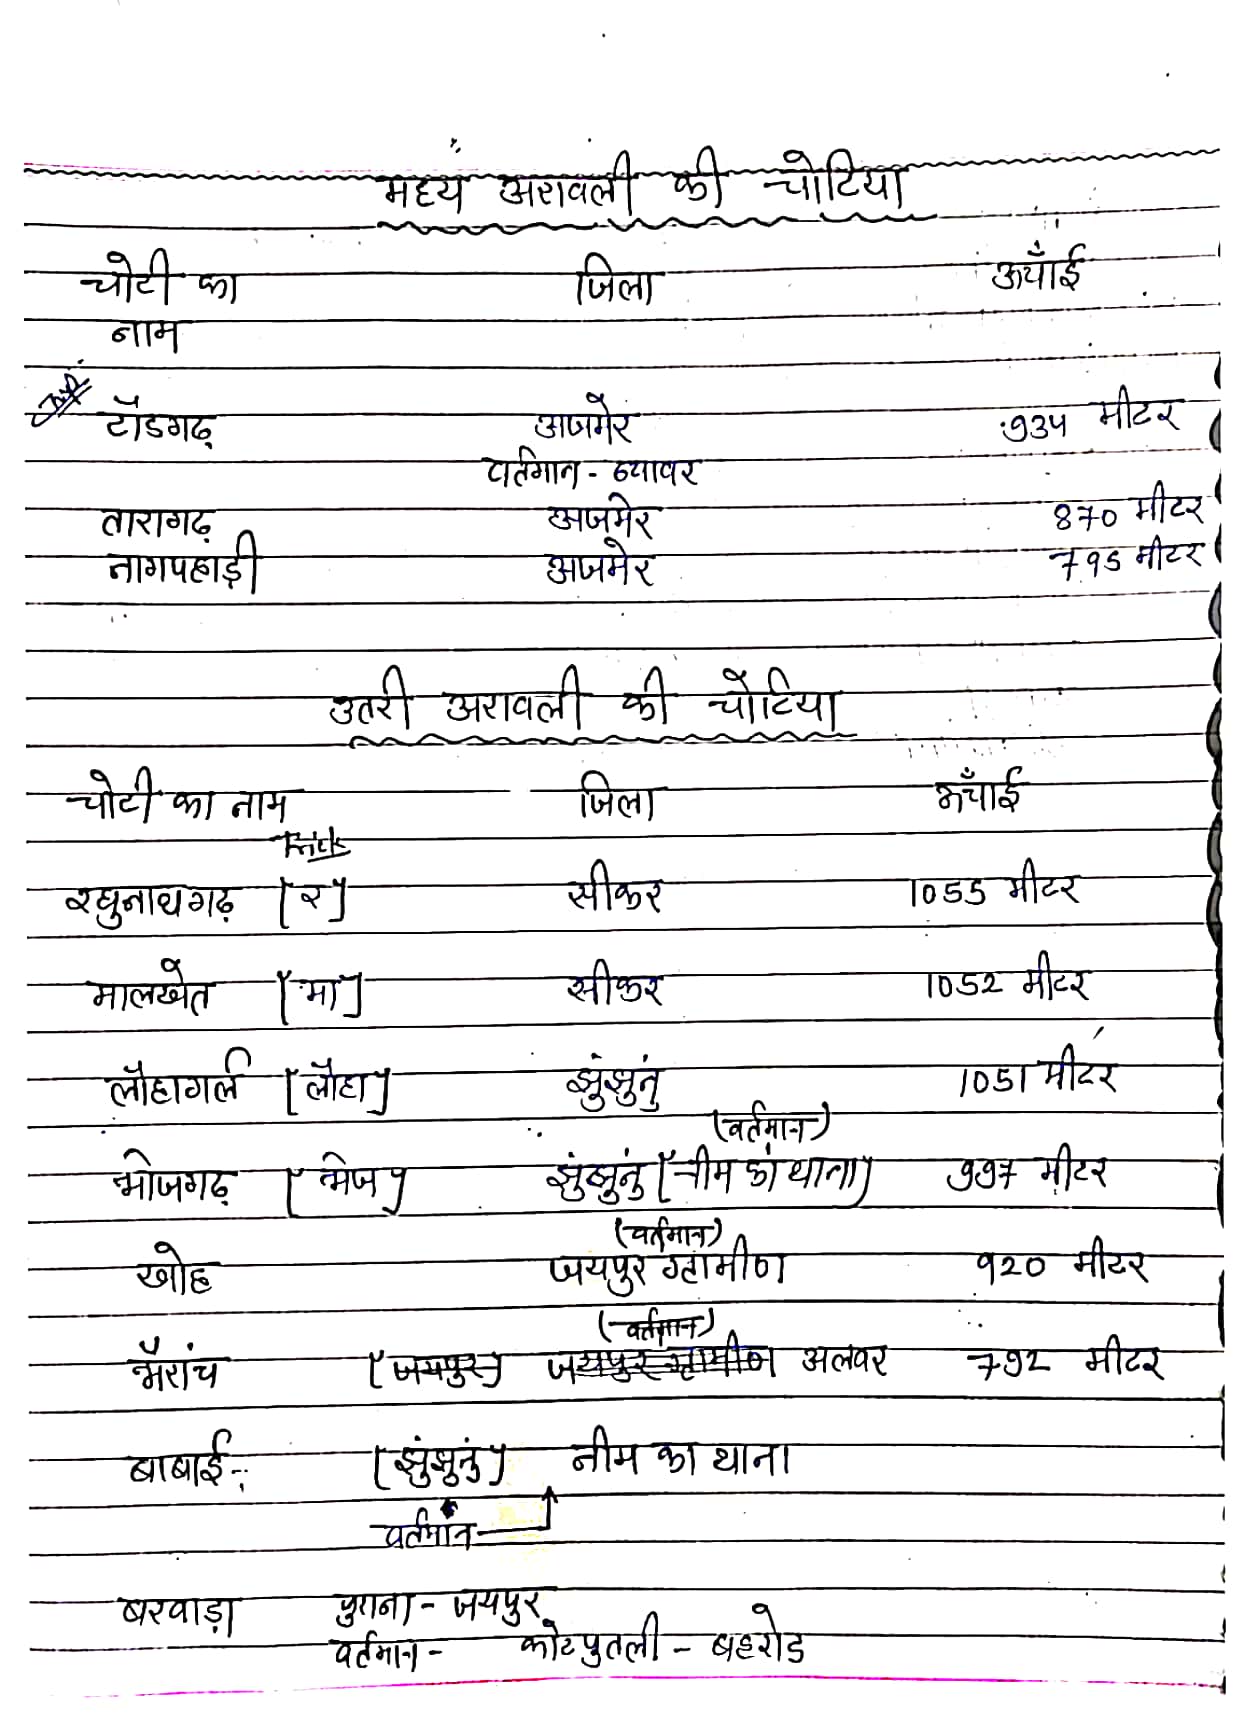 मध्य अरावली की चोटिया
चोटी का जिला ऊचाँई
नाम
टॉडगढ़ अजमेर 934 मीटर
वर्तमान - ब्यावर
तारागढ़ अजमेर 870 मीटर
नागपहाड़ी अजमेर 795 मीटर
उतरी अरावली की चोटिया
चोटी का नाम जिला ऊँचाई
Trick
रघुनाथगढ़ [र] सीकर 1055 मीटर
मालखेत [मा] सीकर 1052 मीटर
लौहागर्ल [लौहा] झुंझुनुं 1051 मीटर
(वर्तमान)
भोजगढ़ [भोज] झुंझुनुं [नीम का थाना] 997 मीटर
(वर्तमान)
खोह जयपुर ग्रामीण 920 मीटर
(वर्तमान)
भैरांच [जयपुर] जयपुर ग्रामीण अलवर 792 मीटर
बाबाई -: [झुंझुनुं] नीम का थाना
वर्तमान
बरवाड़ा पुराना - जयपुर
वर्तमान - कोटपुतली - बहरोड